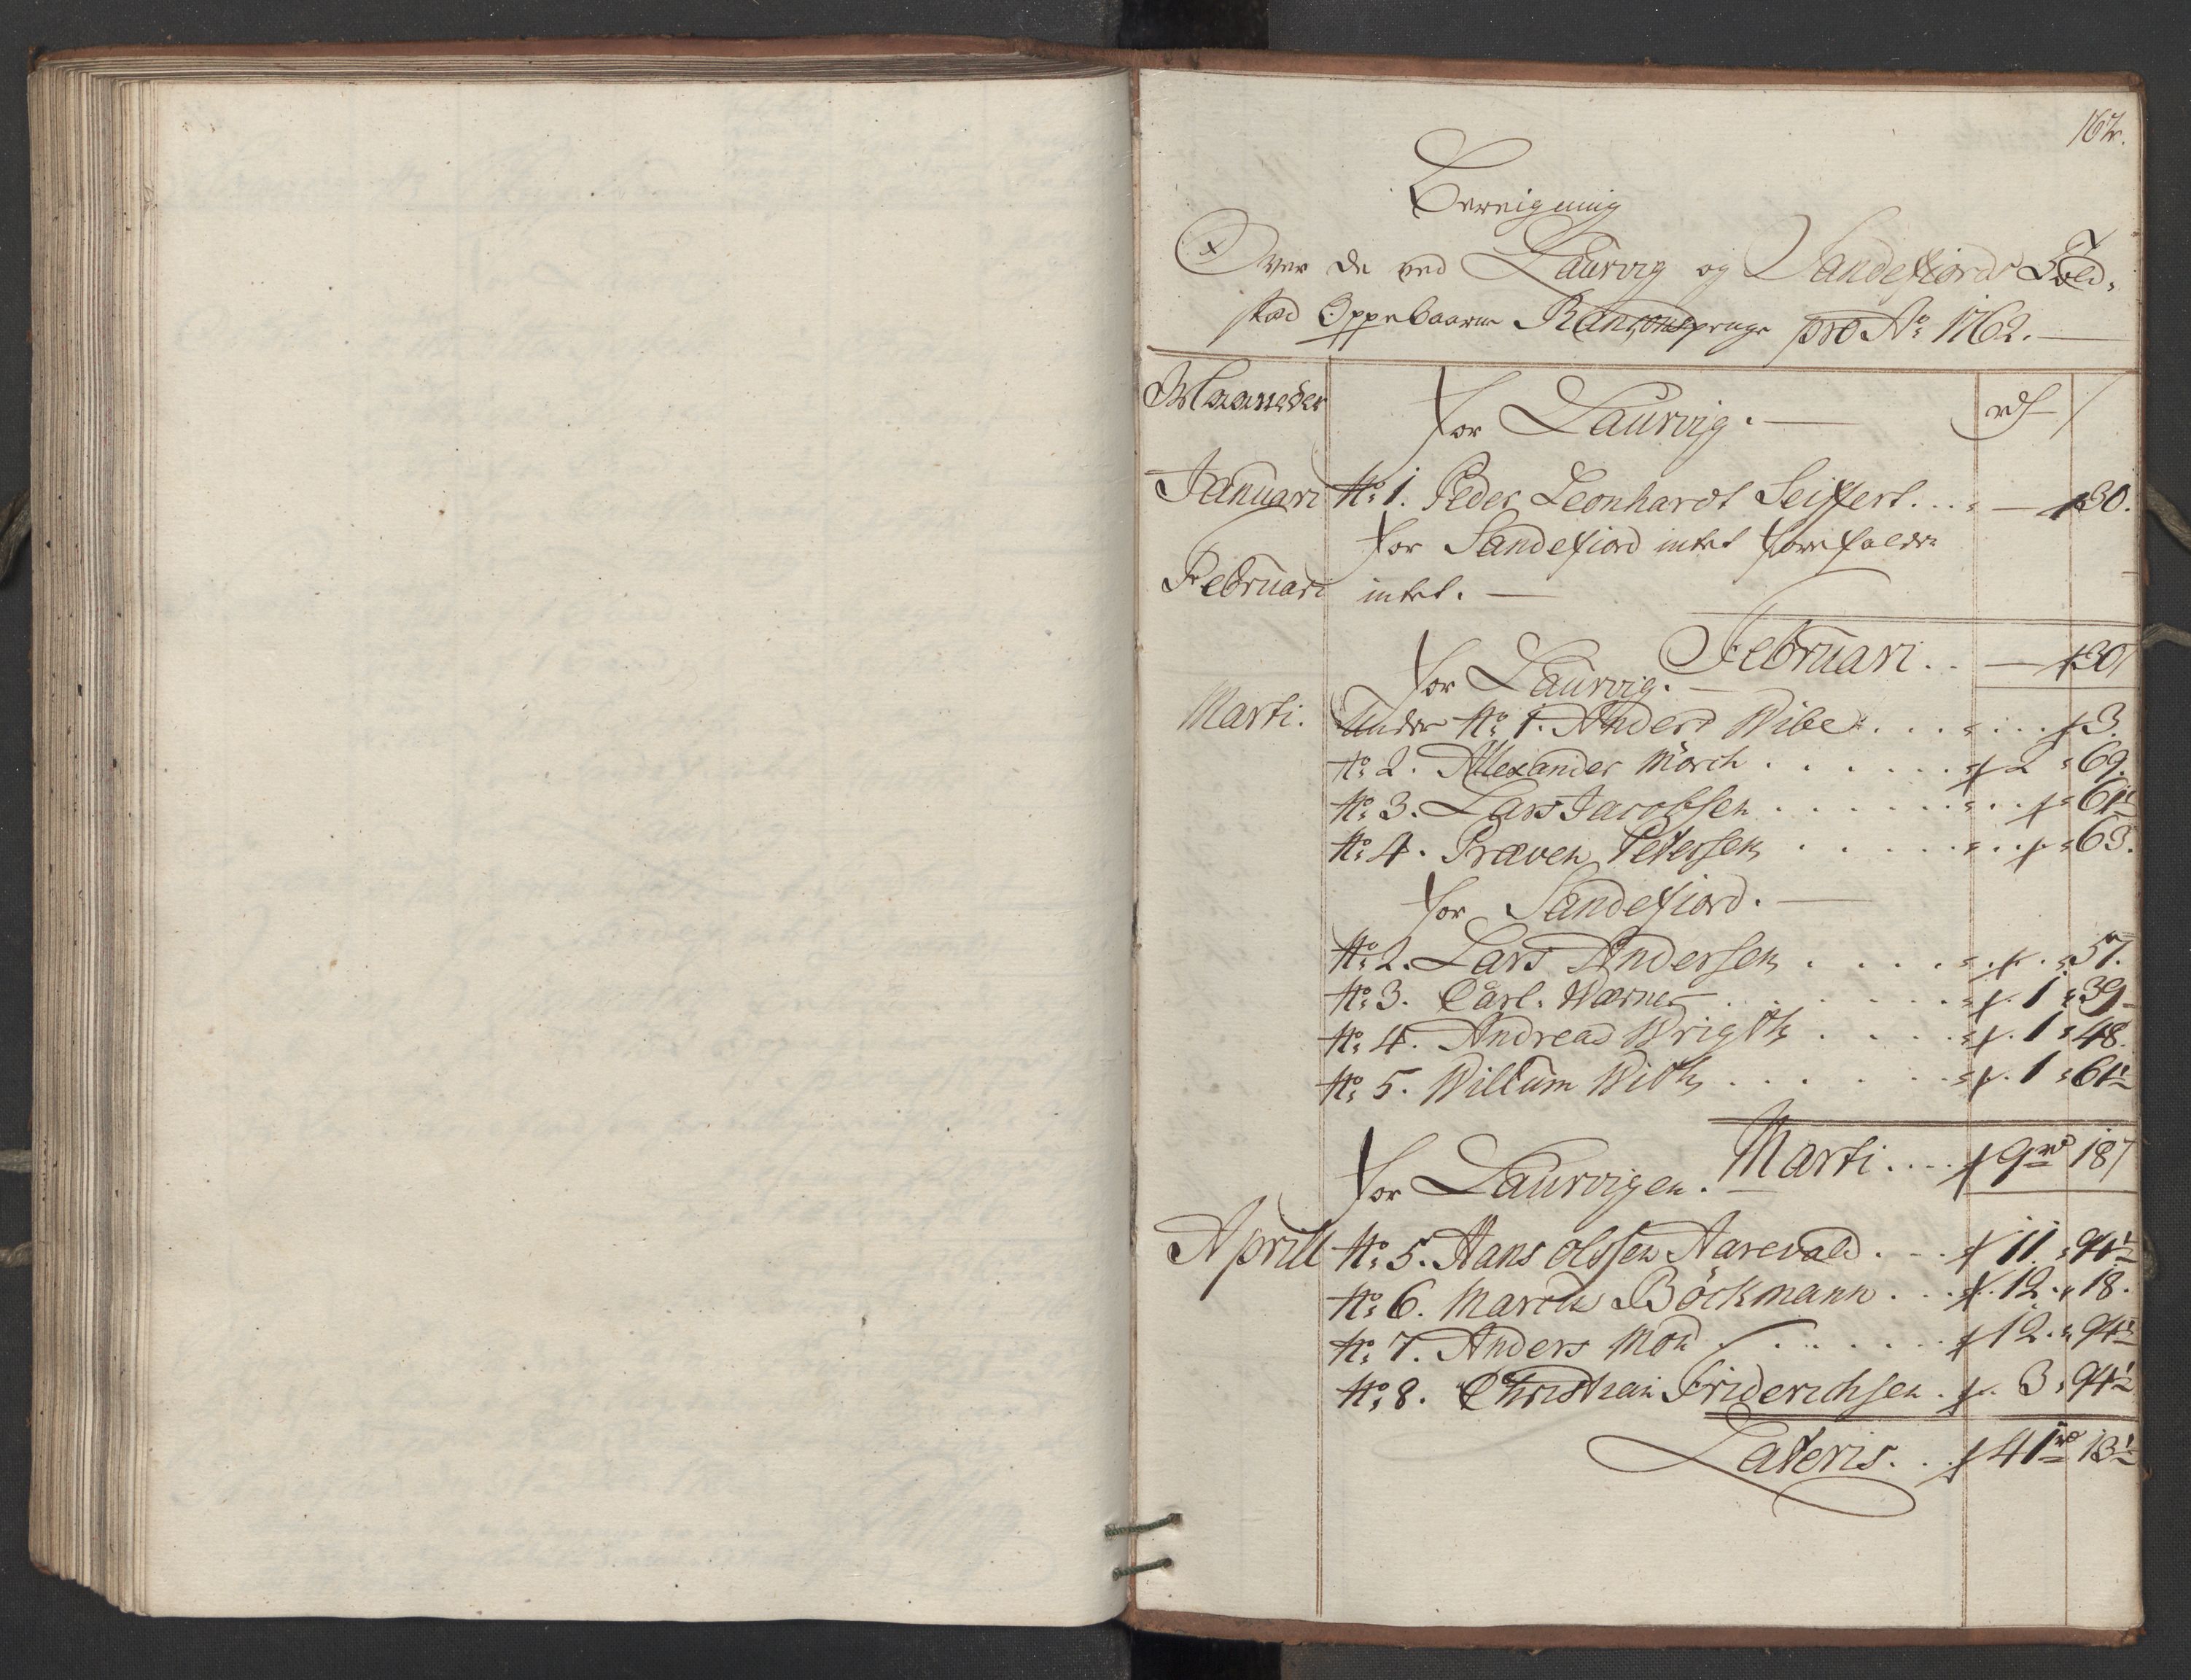 162.
Bereigning
Over de ved Laurvig og Sandefiords Told,
stæd Oppebaarne Rantzonspenge pro Ao: 1762.
Maaneder for Laurvig. rd s
Januari No: 1. Peder Leonhardt Seiffert... 30.
for Sandefiord intet forefalden
Februari intet.
Februari.. 30
for Laurvig.
Marti. Under No: 1. Anders Wibe.... 3.
No: 2. Allexander Mörch...... 2 " 69.
No: 3. Lars Jacobsen......
No: 4. Præven Petersen..... 63.
for Sandefiord.
No: 2. Lars Andersen.... 57.
No: 3. Carl. Wærner...... 1 " 39
No: 4. Andreas Wrigth.... 1 " 48.
No: 5. Willum With......
Marti.... 9 rd 18
for Laurvigen.
Aprill No: 5. Hans Olssen Aarevald... 11 "
No: 6. Marcus Böckmann... 12 " 18.
No: 7. Anders Moh...... 12 "
No: 8. Christian Friderichsen. 3 "
Lateris.. 41 rd 13 1/2